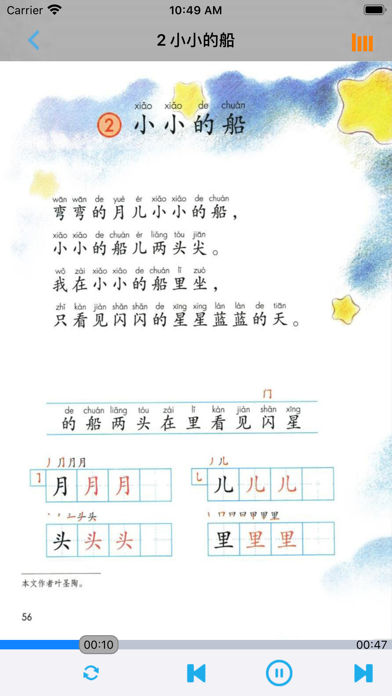 Carrier 10:49 AM
2 小小的船
xiǎo xiǎo de chuán
2 小小的船
wān wān de yuè ér xiǎo xiǎo de chuán
弯弯的月儿小小的船，
xiǎo xiǎo de chuán ér liǎng tóu jiān
小小的船儿两头尖。
wǒ zài xiǎo xiǎo de chuán lǐ zuò
我在小小的船里坐，
zhǐ kàn jiàn shǎn shǎn de xīng xing lán lán de tiān
只看见闪闪的星星蓝蓝的天。
门
de chuán liǎng tóu zài lǐ kàn jiàn shǎn xīng
的船两头在里看见闪星
丿 ⺆ 月 月
丿 儿
月 月 月
儿 儿 儿
头 头
甲 里
头 头 头
里 里 里
本文作者叶圣陶。
56
00:10 00:47